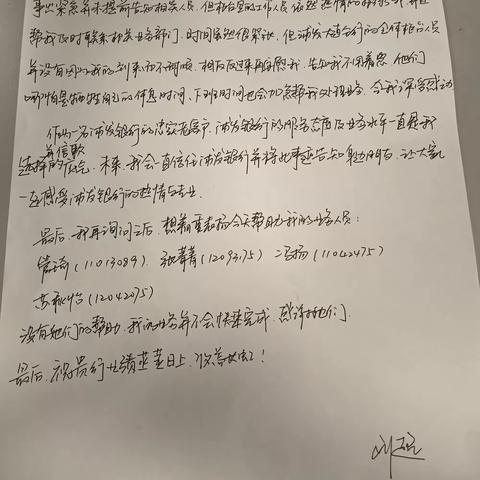 事出紧急并未提前告知相关人员,但柜台里的工作人员依然热情的接待了我并且
帮我及时联系相关业务部门,时间虽然很紧张,但浦发大连分行的全体柜台人员
并没有因为我的到来而不耐烦,相反反过来再安慰我,告知我不用着急,他们
哪怕是牺牲自己的休息时间、下班时间也会加急帮我处理业务,令我深受感动
作为一名浦发银行的忠实老客户,浦发银行的服务态度及业务水平一直是我
选择并信赖的,未来,我会一直信任浦发银行并将此事迹告知身边朋友,让大家
一起感受浦发银行的热情与专业.
最后,我再询问之后,想着重表扬今天帮助我的业务人员:
(11013089)、张菁菁(12093175)、冯杨(11042475)
(12042075)
没有她们的帮助,我的业务并不会快速完成,感谢她们.
最后,祝贵行业绩蒸蒸日上,